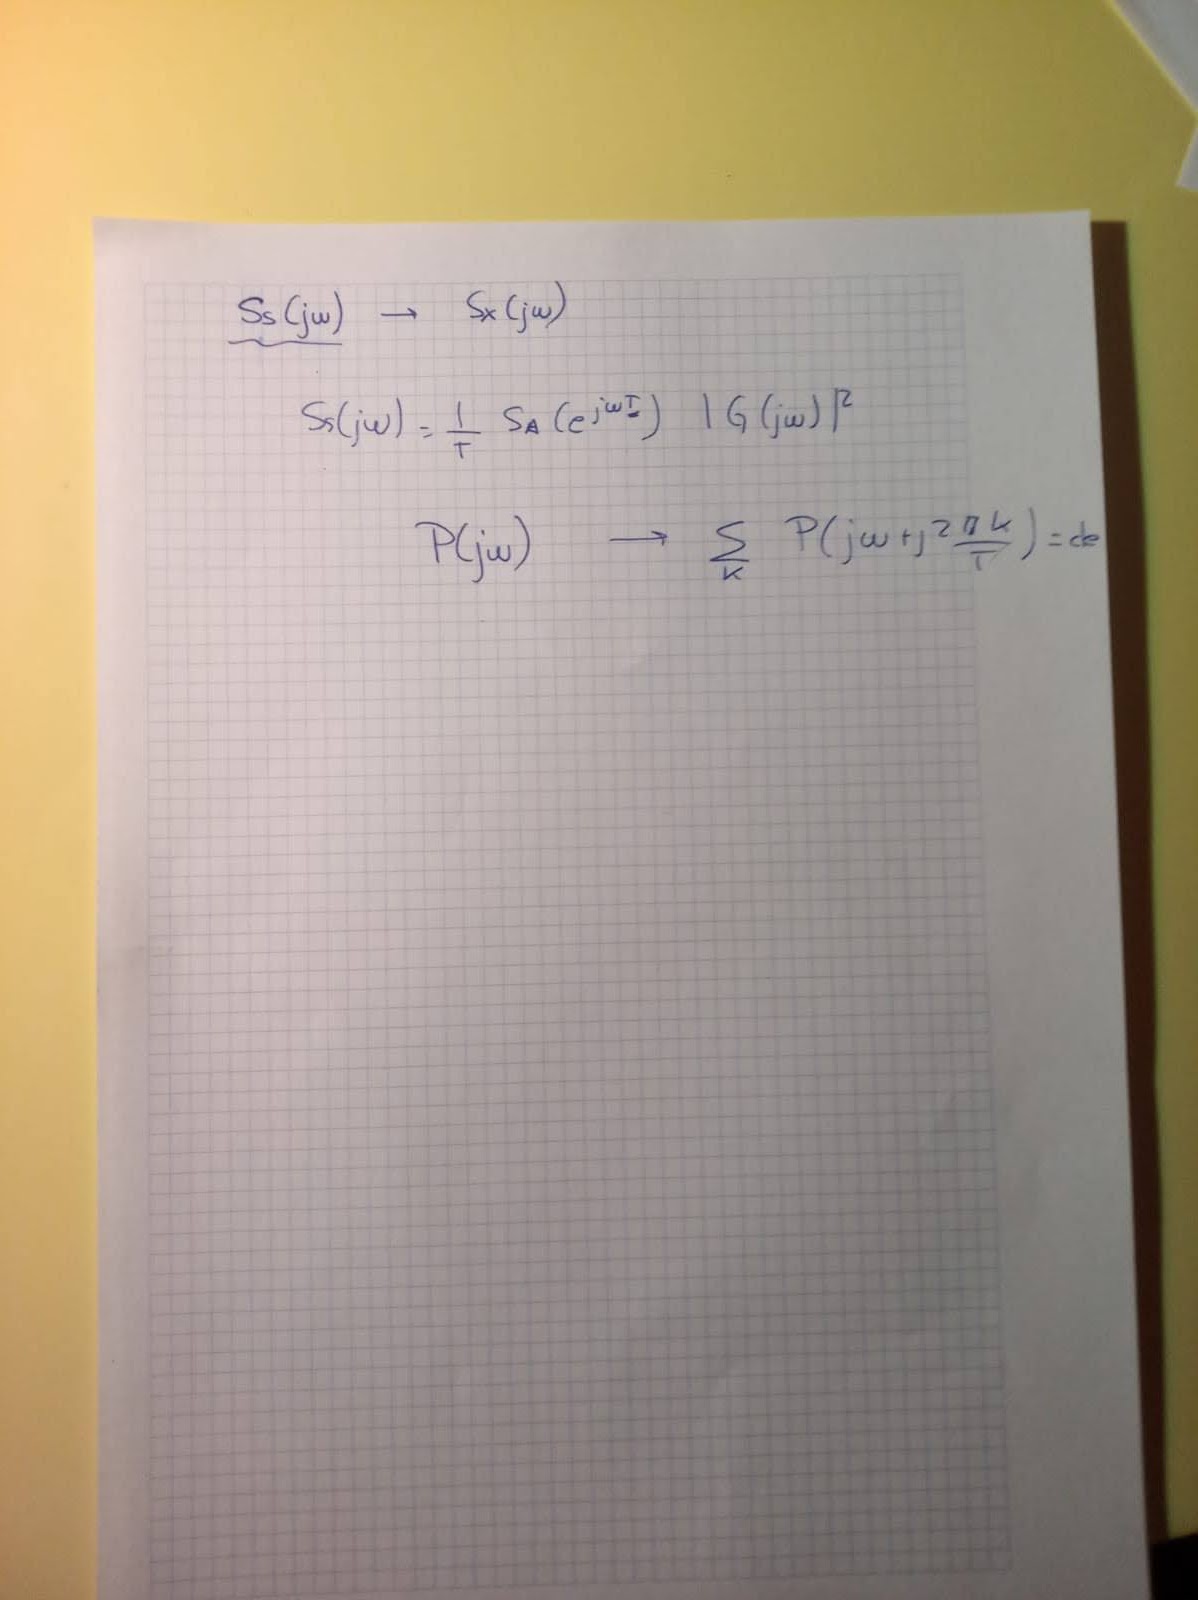 Ss(jω) → Sx(jω)
Ss(jω) = 1/T SA(e^jωT) |G(jω)|²
P(jω) → Σ_k P(jω+j2πk/T) = cte